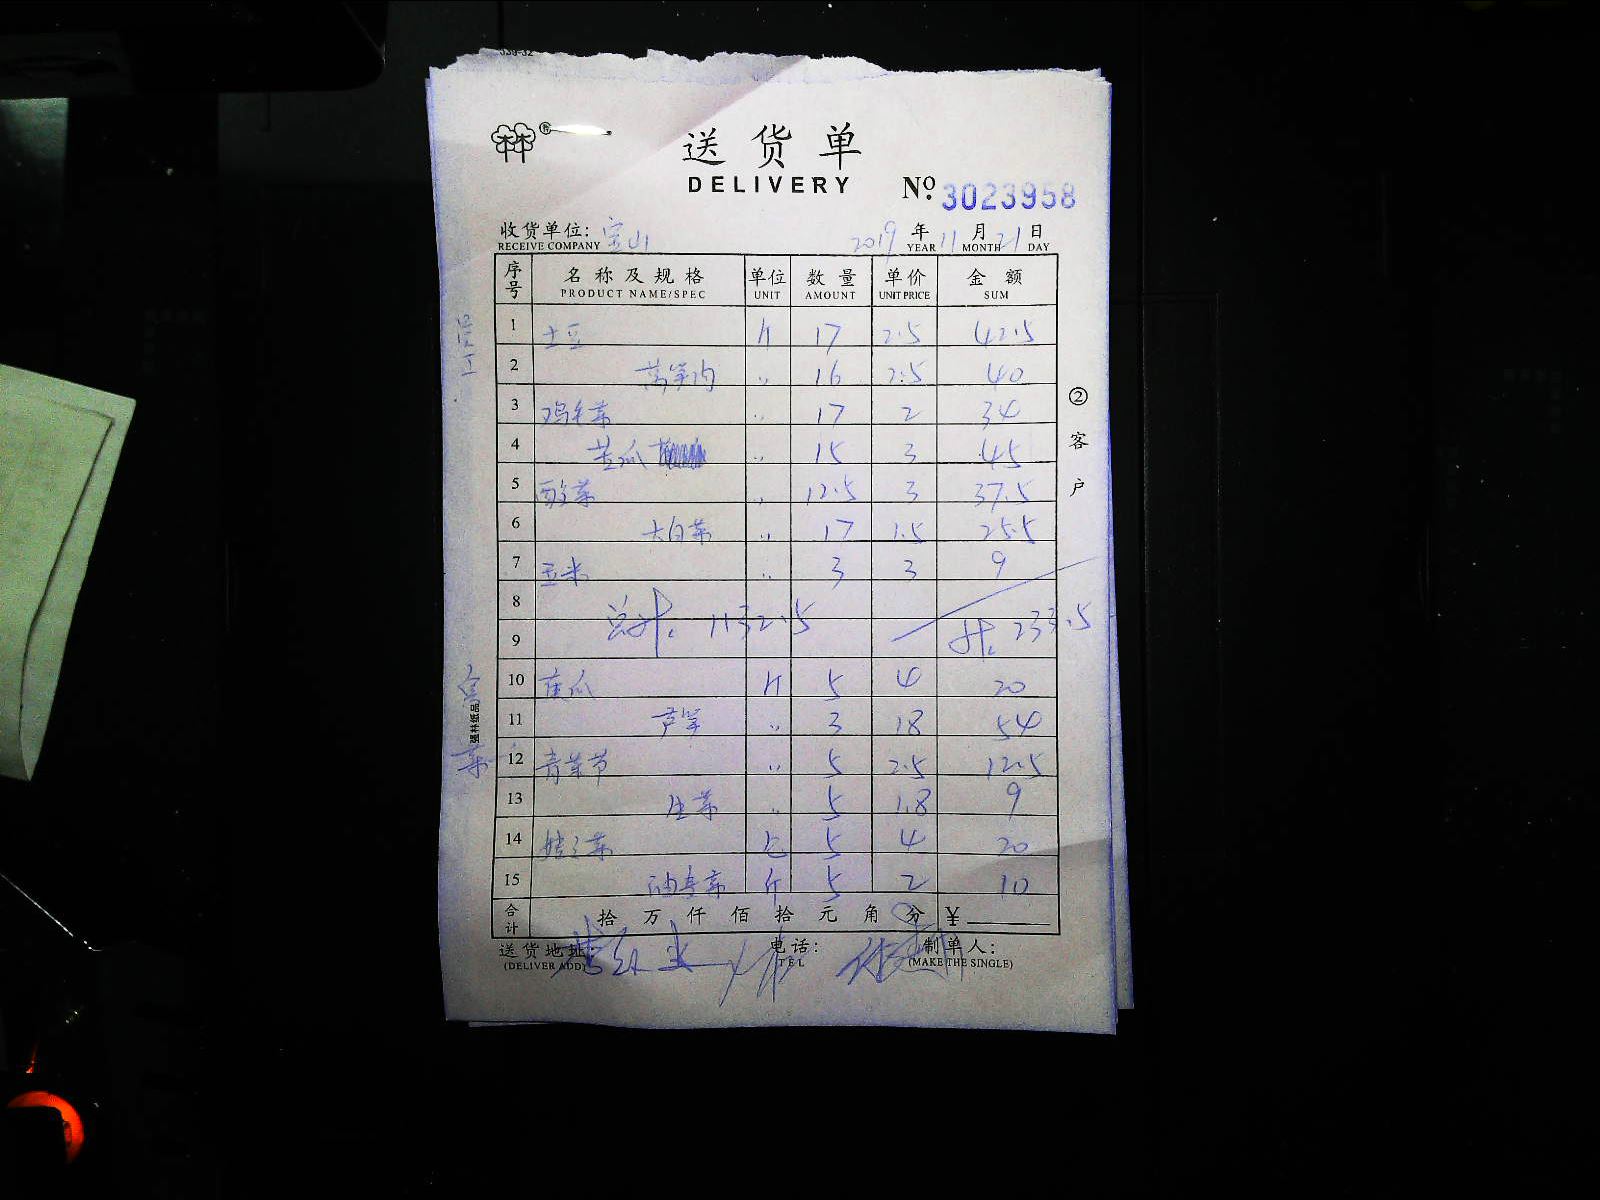 送货单
DELIVERY
No. 3023958
收货单位: 宝山 2019 年 11 月 21 日
RECEIVE COMPANY YEAR MONTH DAY
序号 名称及规格 单位 数量 单价 金额
PRODUCT NAME/SPEC UNIT AMOUNT UNIT PRICE SUM
1 土豆 斤 17 2.5 42.5
2 莴笋肉 〃 16 2.5 40
3 鸡毛菜 〃 17 2 34
4 苦瓜 〃 15 3 45
5 酸菜 〃 12.5 3 37.5
6 大白菜 〃 17 1.5 25.5
7 玉米 〃 3 3 9
8
9 总计: 1132.5 计: 233.5
10 黄瓜 斤 5 4 20
11 芦笋 〃 3 18 54
12 青菜节 〃 5 2.5 12.5
13 生菜 〃 5 1.8 9
14 娃娃菜 包 5 4 20
15 油麦菜 斤 5 2 10
合计 拾 万 仟 佰 拾 元 角 分 ¥
送货地址: 电话: 制单人:
(DELIVER ADD) TEL (MAKE THE SINGLE)
②客户
强林纸品